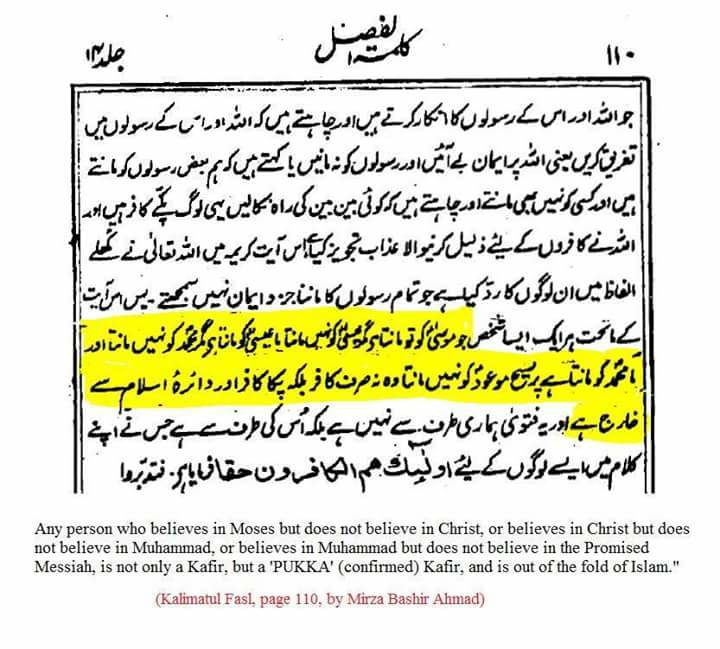 ۱۱۰ کلمۃ الفصل جلد ۱۴
جو اللہ اور اس کے رسولوں کا انکار کرتے ہیں اور چاہتے ہیں کہ اللہ اور اس کے رسولوں میں
تفریق کریں یعنی اللہ پر ایمان لے آئیں اور رسولوں کو نہ مانیں یا کہتے ہیں کہ ہم بعض رسولوں کو مانتے
ہیں اور کسی کو نہیں بھی مانتے اور چاہتے ہیں کہ کوئی بین بین کی راہ نکالیں یہی لوگ پکے کافر ہیں اور
اللہ نے کافروں کے لیئے ذلیل کرنیوالا عذاب تجویز کیا ہے اس آیت کریمہ میں اللہ تعالیٰ نے کھلے
الفاظ میں ان لوگوں کا رد کیا ہے جو تمام رسولوں کا ماننا جزو ایمان نہیں سمجھتے ۔ پس اس آیت
کے ماتحت ہر ایک ایسا شخص جو موسیٰ کو تو مانتا ہے مگر عیسیٰ کو نہیں مانتا یا عیسیٰ کو مانتا ہے مگر محمد کو نہیں مانتا اور
یا محمد کو مانتا ہے پر مسیح موعود کو نہیں مانتا وہ نہ صرف کافر بلکہ پکا کافر اور دائرہ اسلام سے
خارج ہے اور یہ فتویٰ ہماری طرف سے نہیں ہے بلکہ اُس کی طرف سے ہے جس نے اپنے
کلام میں ایسے لوگوں کے لیئے اولٰئک ھم الکافرون حقا فرمایا ہے ۔ فتدبروا
Any person who believes in Moses but does not believe in Christ, or believes in Christ but does
not believe in Muhammad, or believes in Muhammad but does not believe in the Promised
Messiah, is not only a Kafir, but a 'PUKKA' (confirmed) Kafir, and is out of the fold of Islam."
(Kalimatul Fasl, page 110, by Mirza Bashir Ahmad)